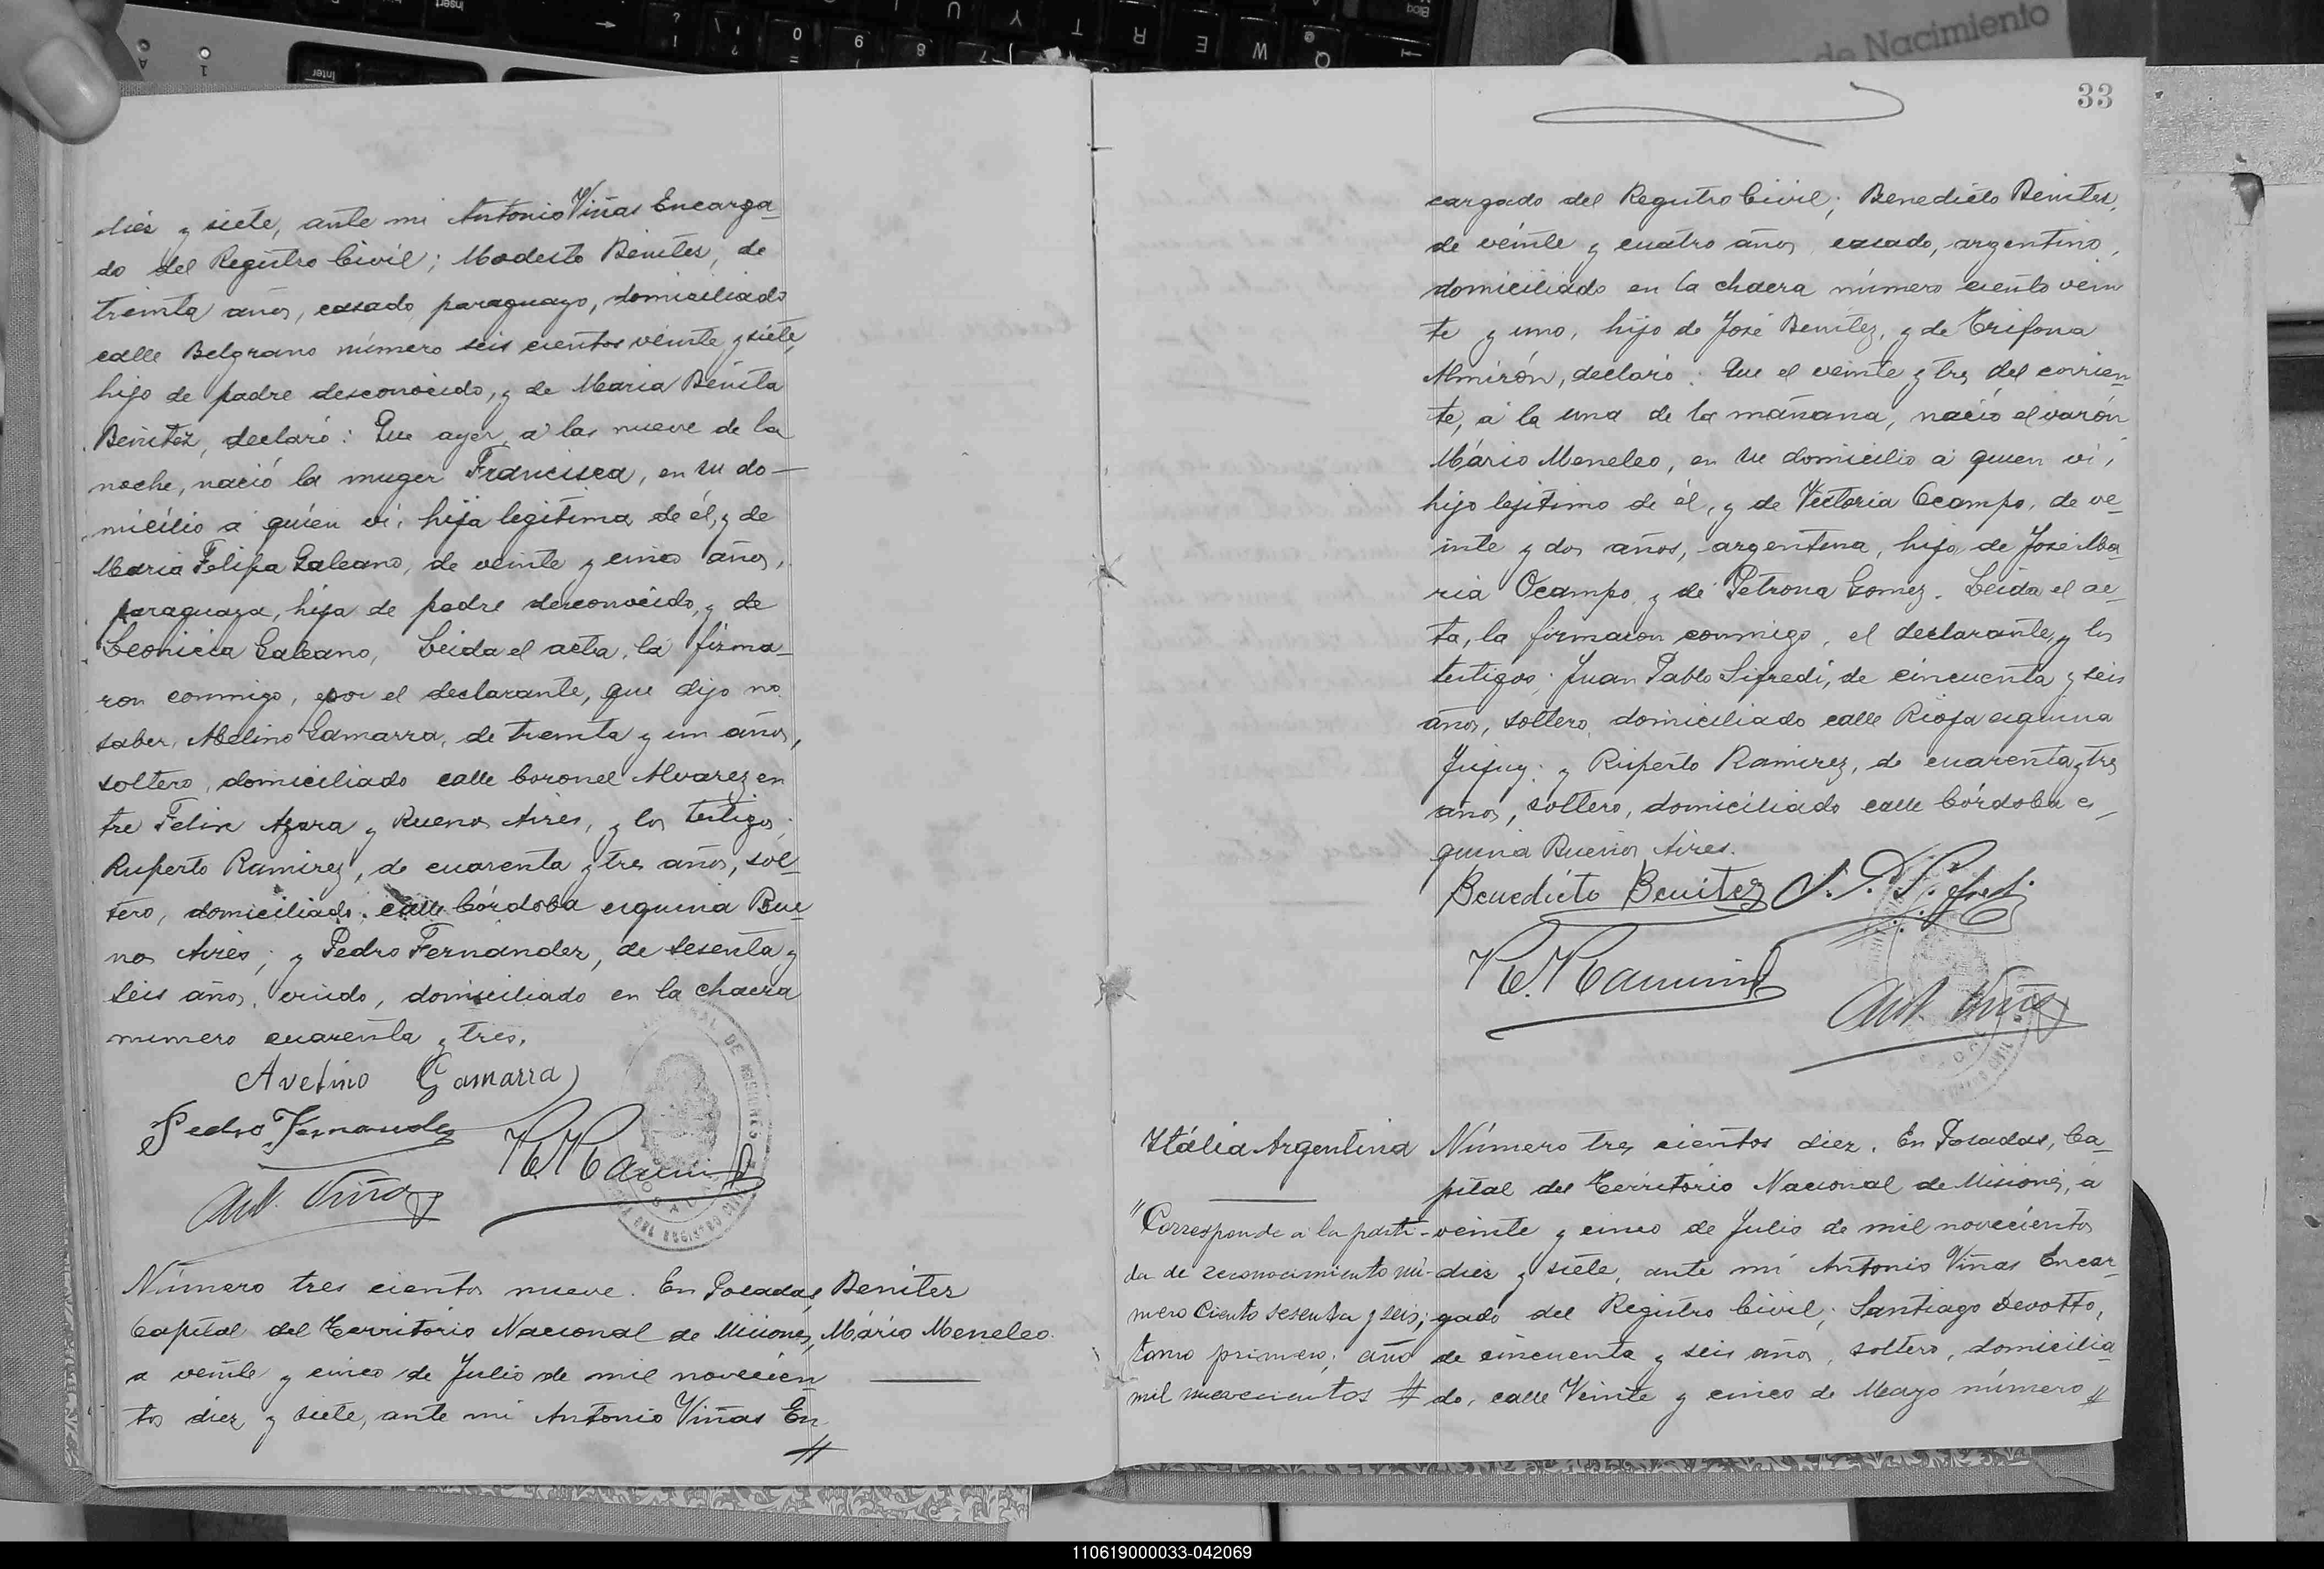 diéz y siete, ante mi Antonio Viñas Encarga-
do del Registro Civil; Modesto Benites, de
treinta años, casado, paraguayo, domiciliado
calle Belgrano número seis cientos veinte y siete,
hijo de padre desconocido, y de Maria Benita
Benitez, declaró: Que ayer, a las nueve de la
noche, nació la muger Francisca, en su do-
micilio a quien vi, hija legitima de él, y de
Maria Felipa Galeano, de veinte y cinco años,
paraguaya, hija de padre desconocido, y de
Leonicia Galeano, Leida el acta, la firma-
ron conmigo, por el declarante, que dijo no
saber, Abelino Gamarra, de treinta y un años,
soltero, domiciliado calle Coronel Alvarez en
tre Felix Azara y Buenos Aires, y los testigos;
Ruperto Ramirez, de cuarenta y tres años, sol-
tero, domiciliado calle Córdoba esquina Bue-
nos Aires; y Pedro Fernández, de sesenta y
seis años, viudo, domiciliado en la chacra
numero cuarenta y tres.
Avelino Gamarra
Pedro Fernandez
R. Ramirez
Ant. Viñas
Número tres cientos nueve. En Posadas,
Capital del Territorio Nacional de Misiones,
a veinte y cinco de Julio de mil novecien
tos diez y siete, ante mi Antonio Viñas En
//
Benitez
Mário Meneleo
33
cargado del Registro Civil; Benedicto Benites,
de veinte y cuatro años, casado, argentino,
domiciliado en la chacra número ciento vein
te y uno, hijo de José Benitez, y de Trifona
Almirón, declaró: Que el veinte y tres del corrien-
te, a la una de la mañana, nació el varón
Mário Meneleo, en su domicilio a quien vi,
hijo lejitimo de él, y de Victoria Ocampo, de ve-
inte y dos años, argentina, hija de José Ma-
ria Ocampo, y de Petrona Gomez. Leida el ac-
ta, la firmaron conmigo, el declarante, y los
testigos; Juan Pablo Sifredi, de cincuenta y seis
años, soltero, domiciliado calle Rioja esquina
Jujuy; y Ruperto Ramirez, de cuarenta y tres
años, soltero, domiciliado calle Córdoba es-
quina Buenos Aires.
Benedicto Benitez J. P. Sifredi
R. Ramirez
Ant. Viñas
Itália Argentina
"Corresponde a la parti-
da de reconocimiento nú-
mero Ciento sesenta y seis;
tomo primero; año
mil nuevecientos #
Número tres cientos diez. En Posadas, Ca-
pital del Territorio Nacional de Misiones, á
veinte y cinco de Julio de mil novecientos
diez y siete, ante mi Antonio Viñas Encar-
gado del Registro Civil; Santiago Devotto,
de cincuenta y seis años, soltero, domicilia-
do, calle Veinte y cinco de Mayo número //
110619000033-042069